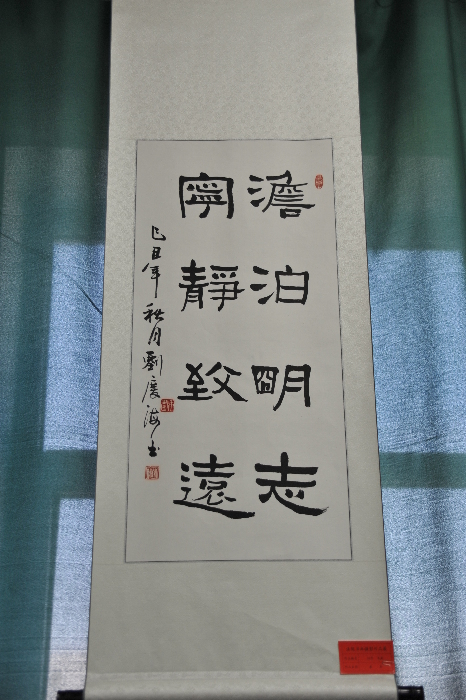 澹泊明志
寧靜致遠
己丑年秋月劉慶海書